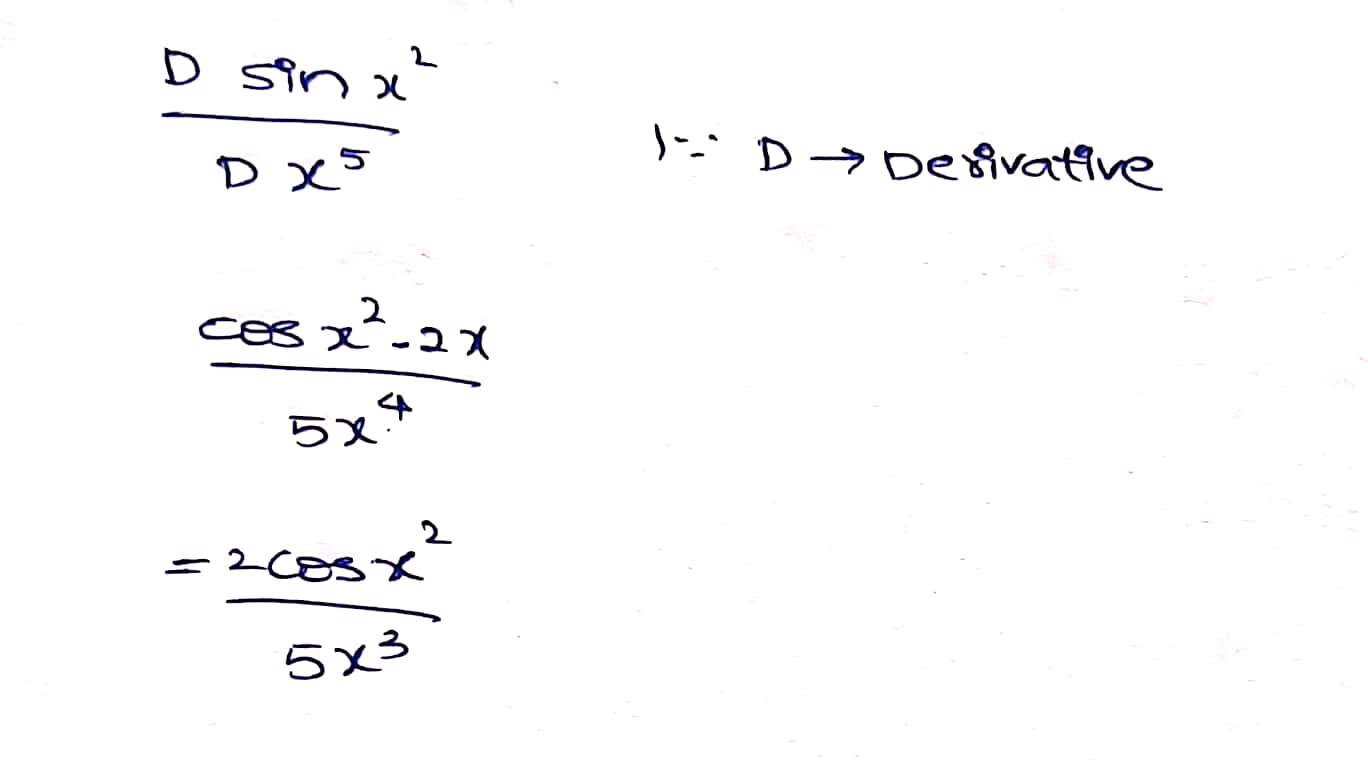 D sin x²
D x⁵
∵ D → Derivative
cos x² - 2x
5x⁴
= 2cos x²
5x³